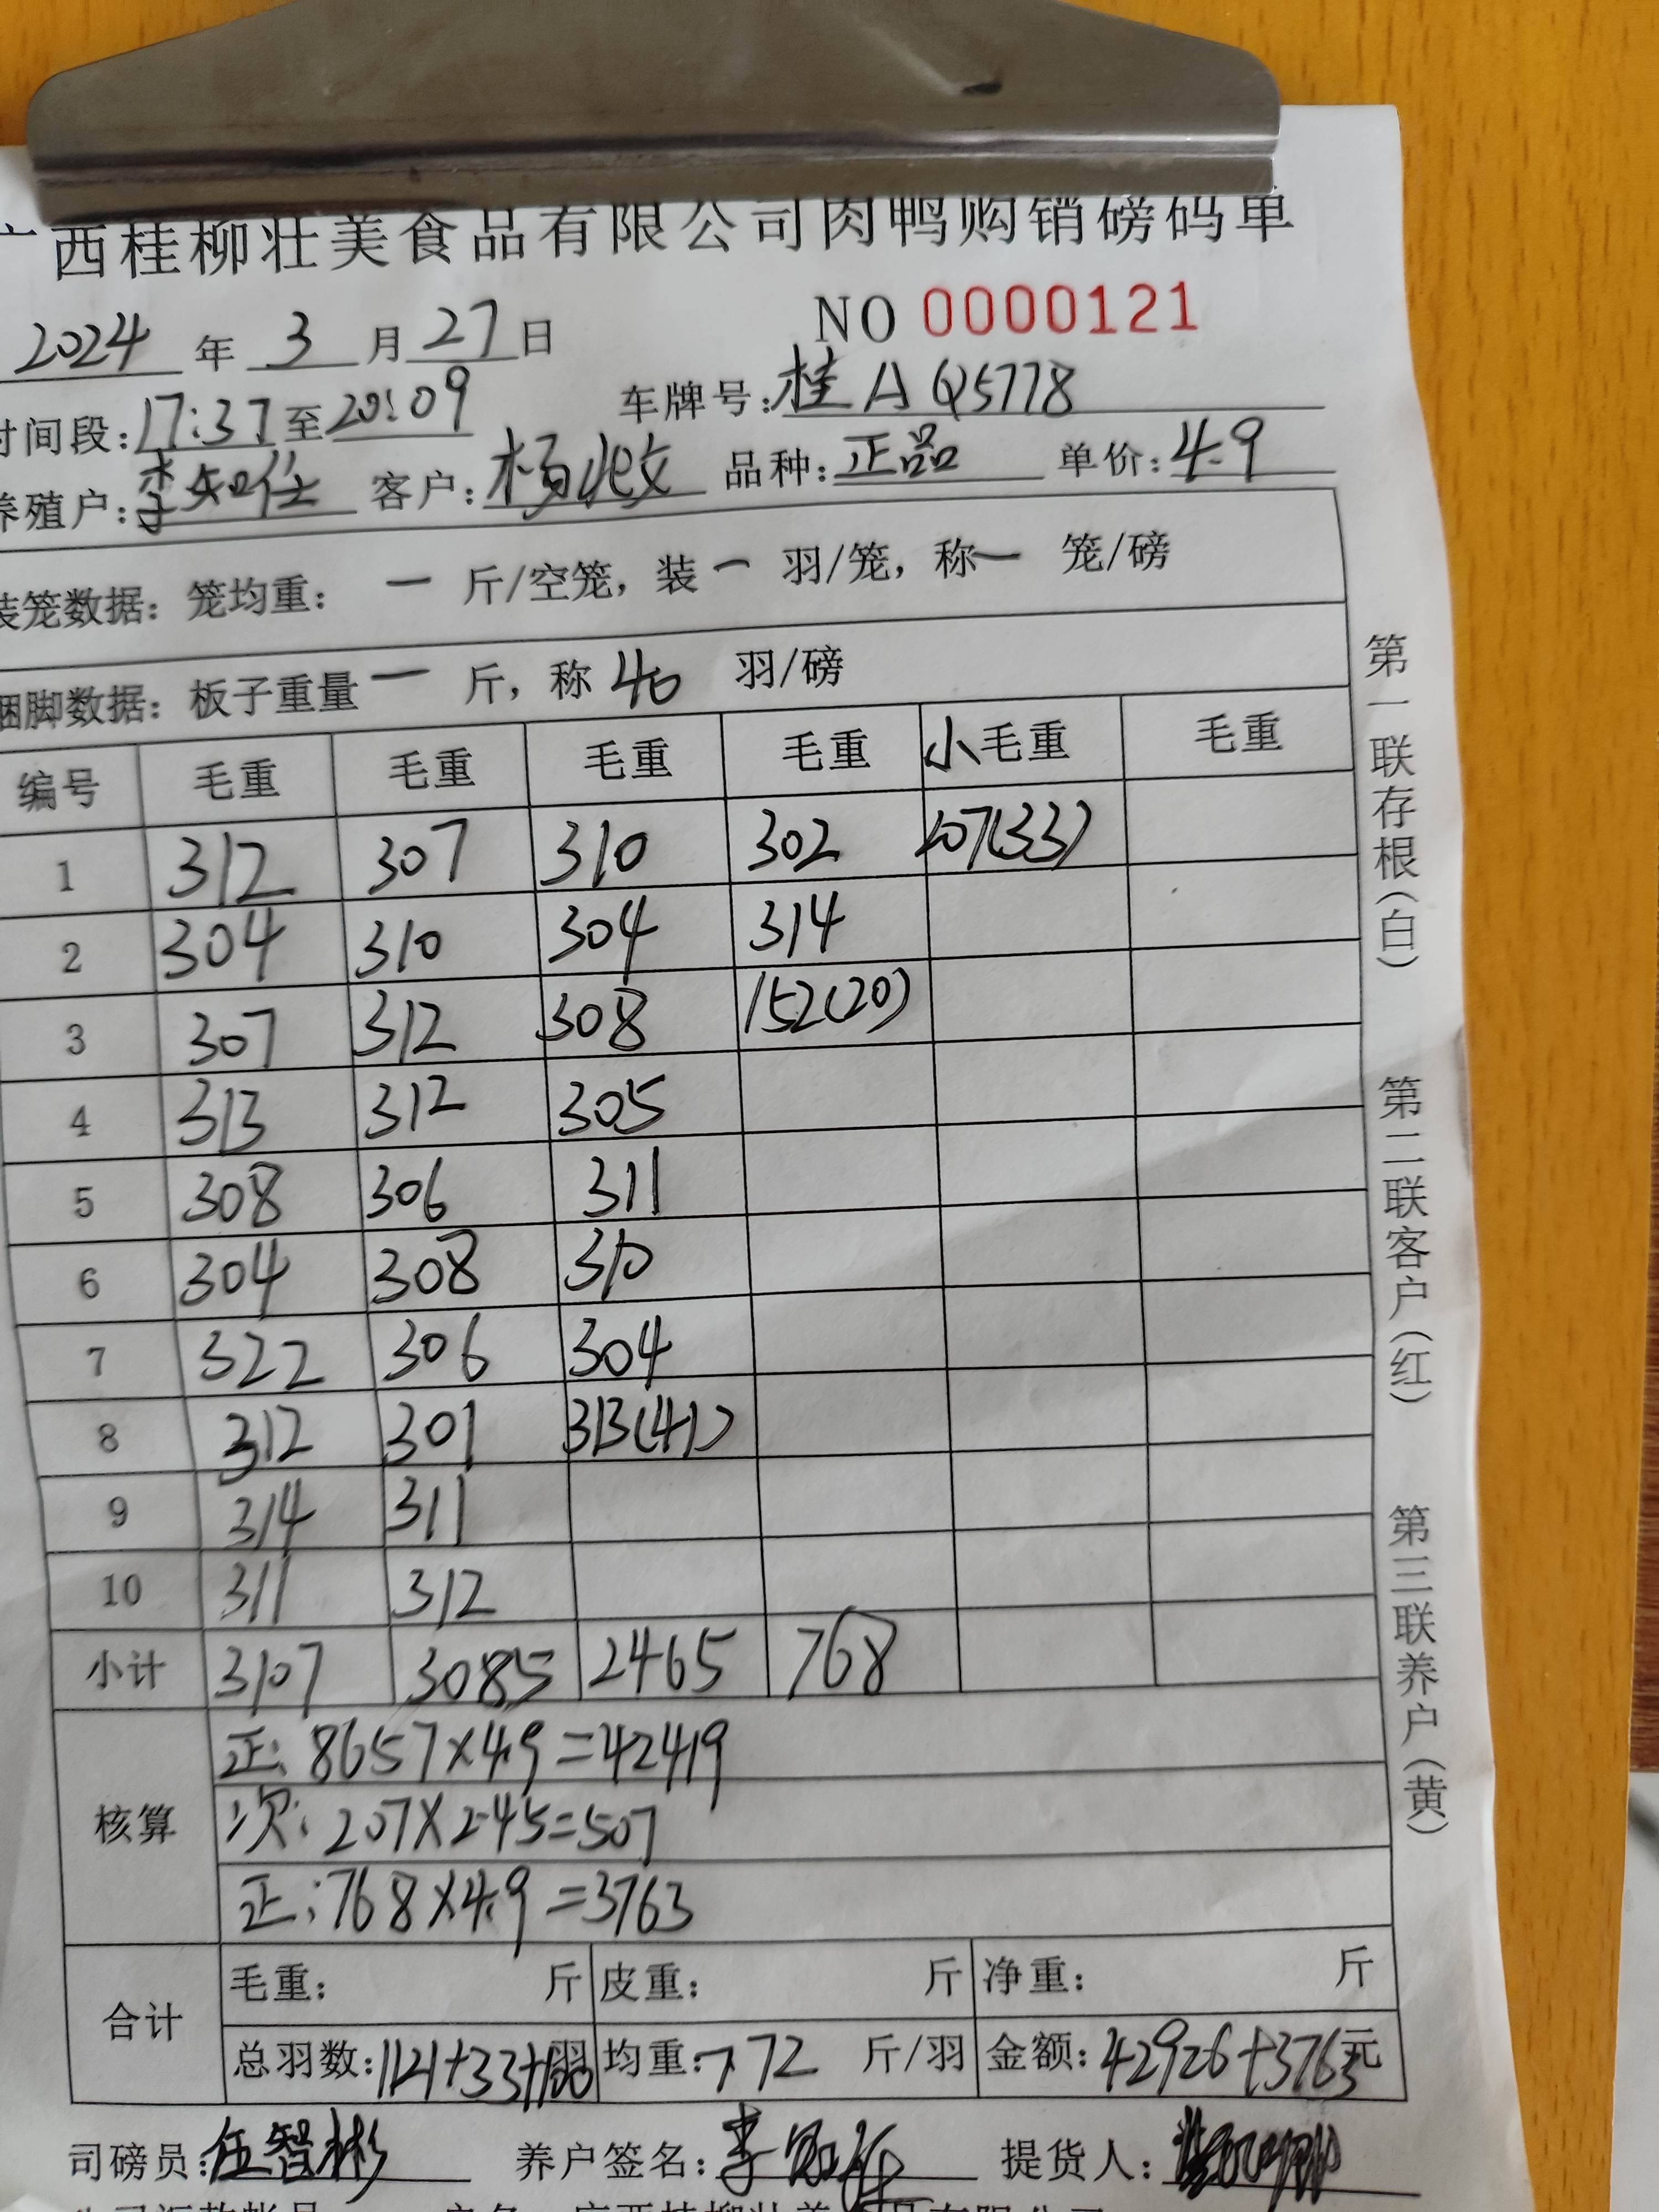 广西桂柳壮美食品有限公司肉鸭购销磅码单
2024 年 3 月 27 日 NO 0000121
时间段: 17:37 至 20:09 车牌号: 桂A Q5778
养殖户: 李知任 客户: 杨 品种: 正品 单价: 4.9
装笼数据: 笼均重: 一 斤/空笼, 装 一 羽/笼, 称 一 笼/磅
捆脚数据: 板子重量 一 斤, 称 40 羽/磅
编号 毛重 毛重 毛重 毛重 小毛重 毛重
1 312 307 310 302 207(33)
2 304 310 304 314
3 307 312 308 152(20)
4 313 312 305
5 308 306 311
6 304 308 310
7 322 306 304
8 312 301 313(41)
9 314 311
10 311 312
小计 3107 3085 2465 768
核算
正: 8657×4.9=42419
次: 207×2.45=507
正: 768×4.9=3763
合计
毛重: 斤 皮重: 斤 净重: 斤
总羽数: 1121+33+100羽 均重: 7.72 斤/羽 金额: 42926+3763元
司磅员: 伍智彬 养户签名: 李 提货人:
第一联存根(白) 第二联客户(红) 第三联养户(黄)